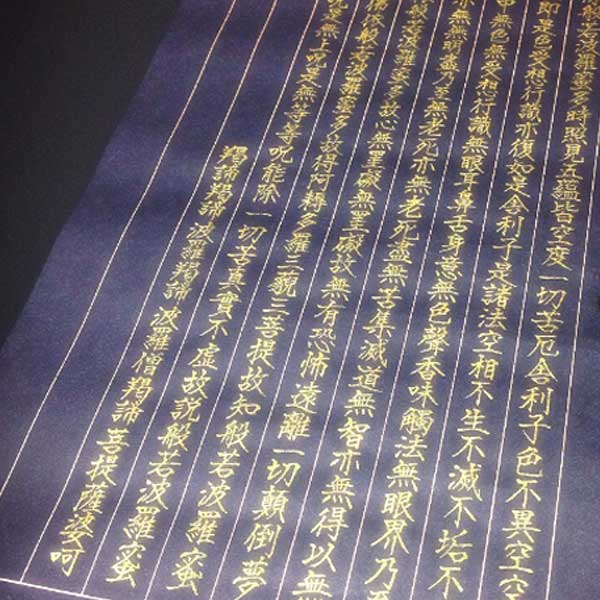 般若波羅蜜多時照見五蘊皆空度一切苦厄舍利子色不異空空
即是色受想行識亦復如是舍利子是諸法空相不生不滅不垢不
中無色無受想行識無眼耳鼻舌身意無色聲香味觸法無眼界乃至
亦無無明盡乃至無老死亦無老死盡無苦集滅道無智亦無得以無
般若波羅蜜多故心無罣礙無罣礙故無有恐怖遠離一切顛倒夢
佛依般若波羅蜜多故得阿耨多羅三藐三菩提故知般若波羅蜜
呪是無上呪是無等等呪能除一切苦真實不虛故說般若波羅蜜
羯諦羯諦 波羅羯諦 波羅僧羯諦 菩提薩婆呵